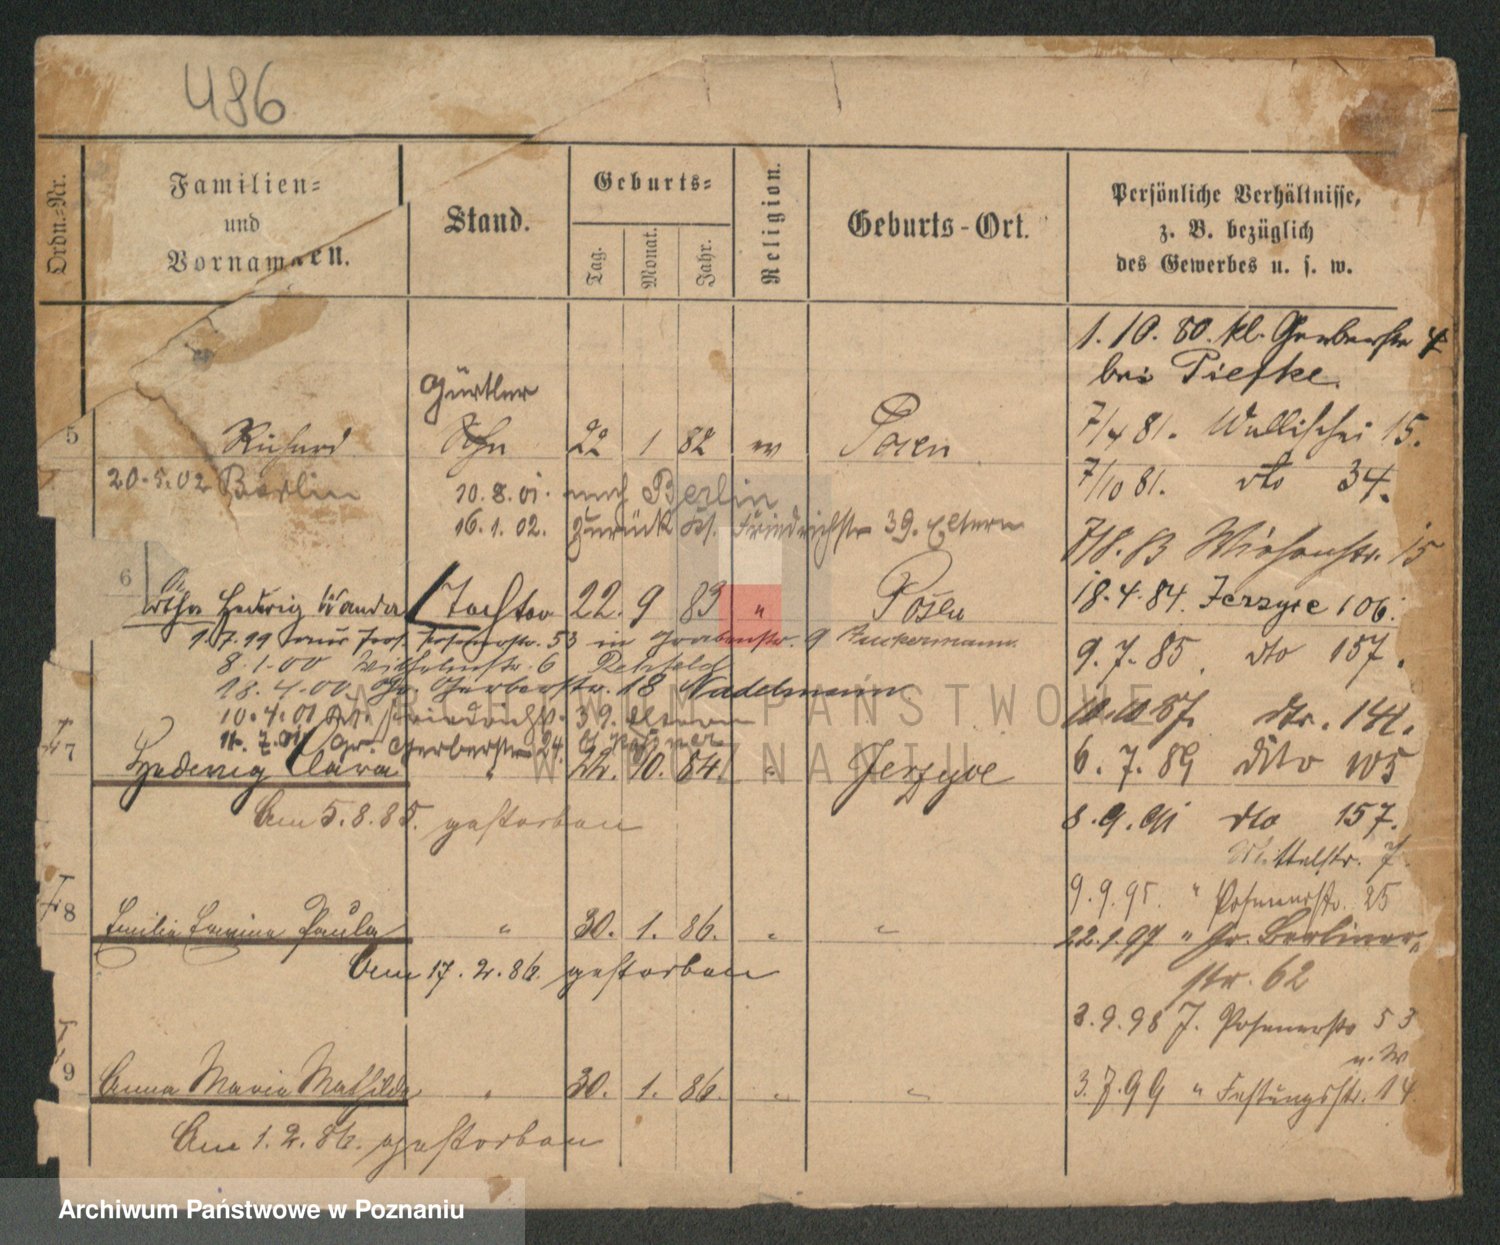 486
Ordn.-Nr.
Familien-
und
Vornamen.
Stand.
Geburts-
Tag.
Monat.
Jahr.
Religion.
Geburts-Ort.
Persönliche Verhältnisse,
z. B. bezüglich
des Gewerbes u. s. w.
1.10.80. kl. Gerberstr 4
bei Piefke.
Gürtler
5 Richard Sohn 22 1 82 ev Posen
7/4 81. Wallischei 15.
20.5.02 Berlin
10.8.01. nach Berlin
7/10 81. dto 34.
16.1.02. zurück Ks. Friedrichstr 39. Eltern
7/8.83 Wiesenstr. 15
6 Hedwig Wanda Tochter 22. 9 83 " Posen
18.4.84. Jerzyce 106.
1.7.99 aus Posenerstr. 53 in Grabenstr. 9 Zuckermann.
8.1.00 Wilhelmstr. 6 Rehfeld
9.7.85. dto 157.
18.4.00 Gr. Gerberstr. 18 Nadelmann
10.4.01 Ks. Friedrichst. 39. Eltern
10.10.87. dto. 144.
11.7.01 Gr. Gerberstr 24.
7 Hedwig Clara " 22. 10. 84. " Jerzyce
6.7.89 dito 105
Am 5.8.85. gestorben
8.9.91 dto 157.
Mittelstr. 7.
9.9.95. " Posenerstr. 25
8 Emilie Emma Paula " 30. 1. 86. " "
22.1.97 " Gr. Berliner-
str. 62
Am 17.2.86. gestorben
3.9.98 J. Posenerstr 53
9 Anna Maria Mathilde " 30. 1. 86. " "
3.7.99 " Festungsstr. 14
Am 1.2.86. gestorben
ARCHIWUM PAŃSTWOWE
W POZNANIU
Archiwum Państwowe w Poznaniu